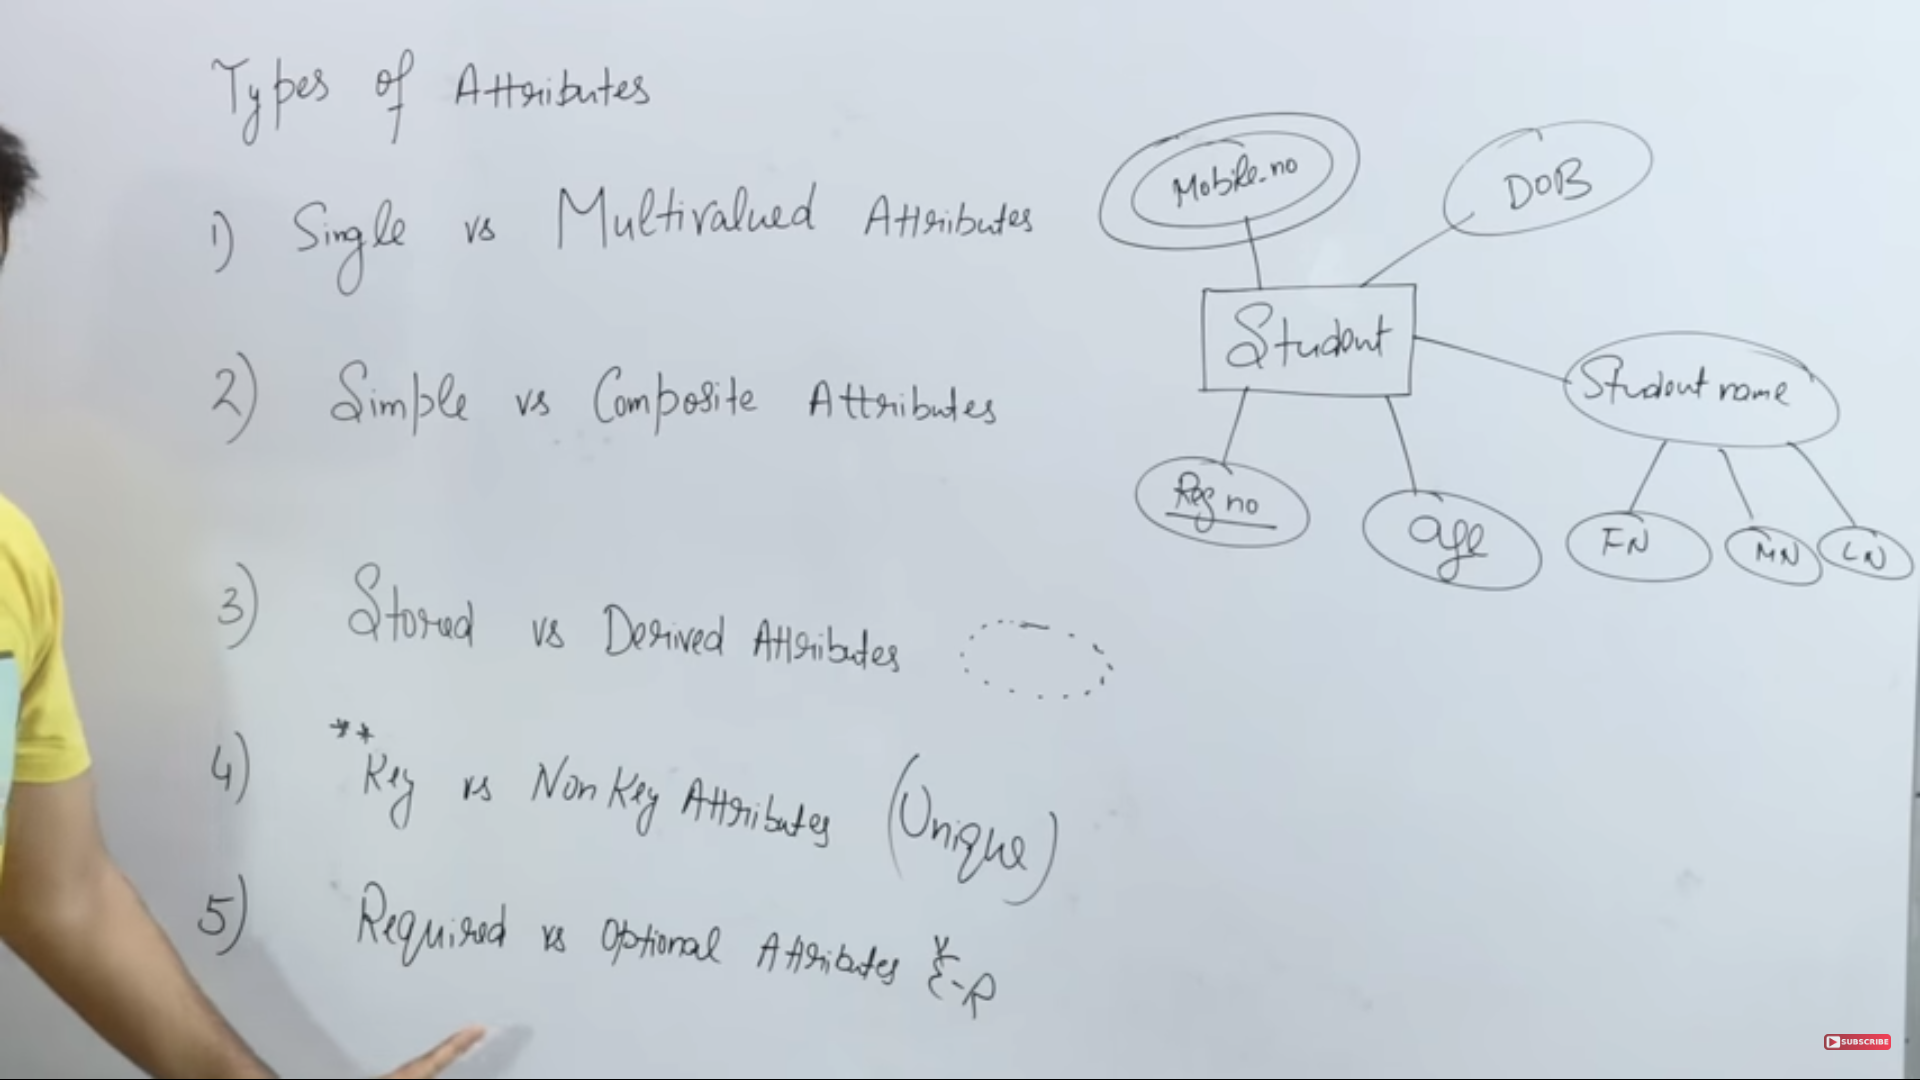 Types of Attributes
1) Single vs Multivalued Attributes
2) Simple vs Composite Attributes
3) Stored vs Derived Attributes
**
4) Key vs Non Key Attributes (Unique)
5) Required vs Optional Attributes
E-R
Mobile-no
DOB
Student
Student name
Reg no
age
FN
MN
LN
SUBSCRIBE